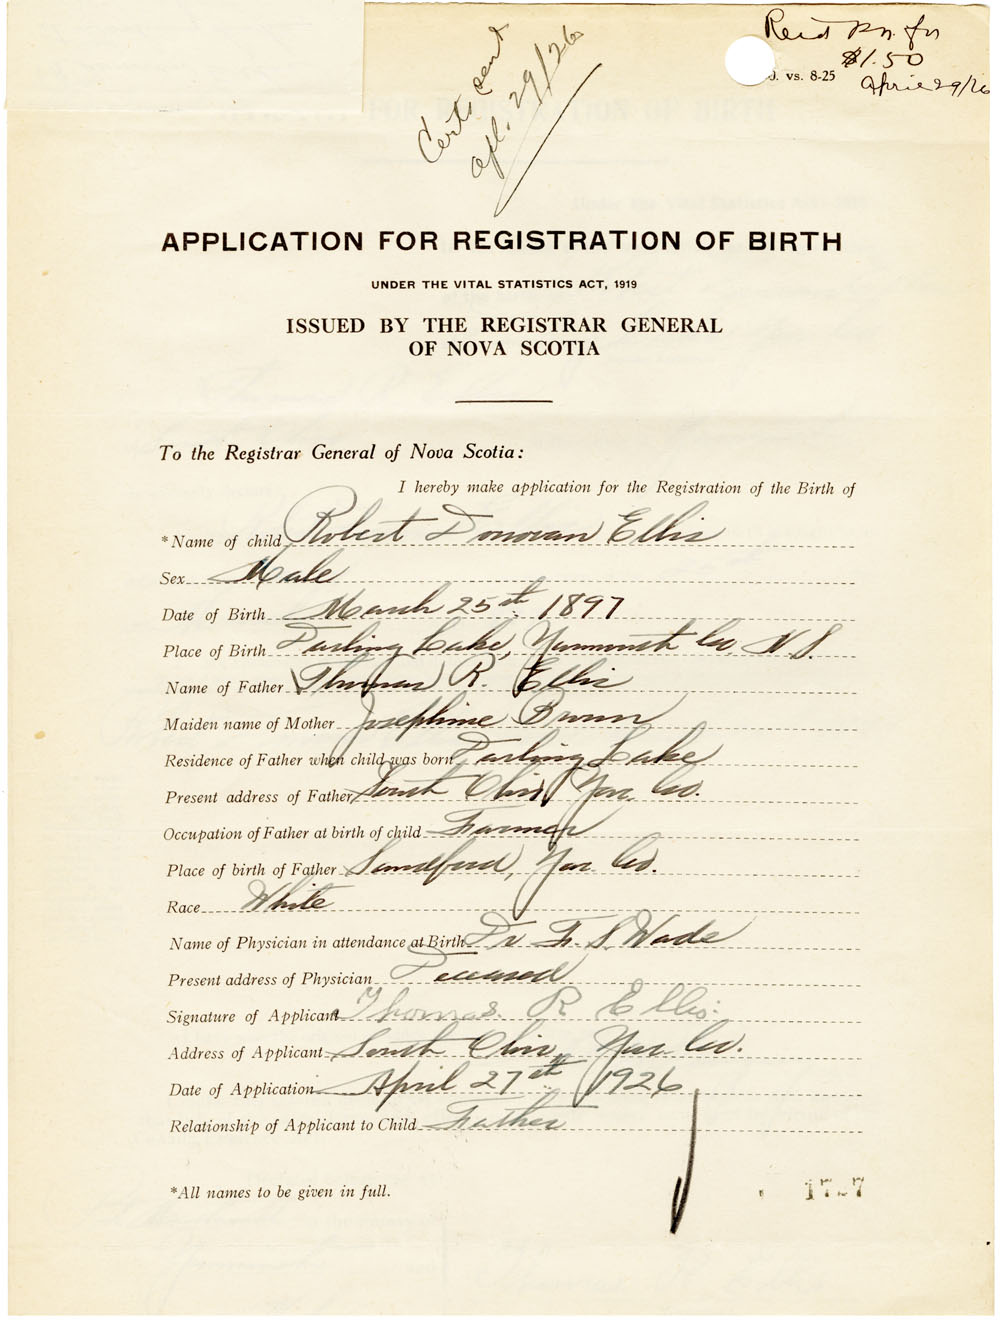 Certs sent
apl. 29/26
Recd pn. for
$1.50
April 29/26
vs. 8-25
APPLICATION FOR REGISTRATION OF BIRTH
UNDER THE VITAL STATISTICS ACT, 1919
ISSUED BY THE REGISTRAR GENERAL
OF NOVA SCOTIA
To the Registrar General of Nova Scotia:
I hereby make application for the Registration of the Birth of
*Name of child Robert Donovan Ellis
Sex Male
Date of Birth March 25th 1897
Place of Birth Darling Lake, Yarmouth Co, N.S.
Name of Father Thomas R. Ellis
Maiden name of Mother Josephine Brown
Residence of Father when child was born Darling Lake
Present address of Father South Ohio, Yar. Co.
Occupation of Father at birth of child Farmer
Place of birth of Father Sandford, Yar. Co.
Race White
Name of Physician in attendance at Birth Dr F. S. Wade
Present address of Physician Deceased
Signature of Applicant Thomas. R Ellis.
Address of Applicant South Ohio, Yar. Co.
Date of Application April 27th 1926
Relationship of Applicant to Child Father
*All names to be given in full.